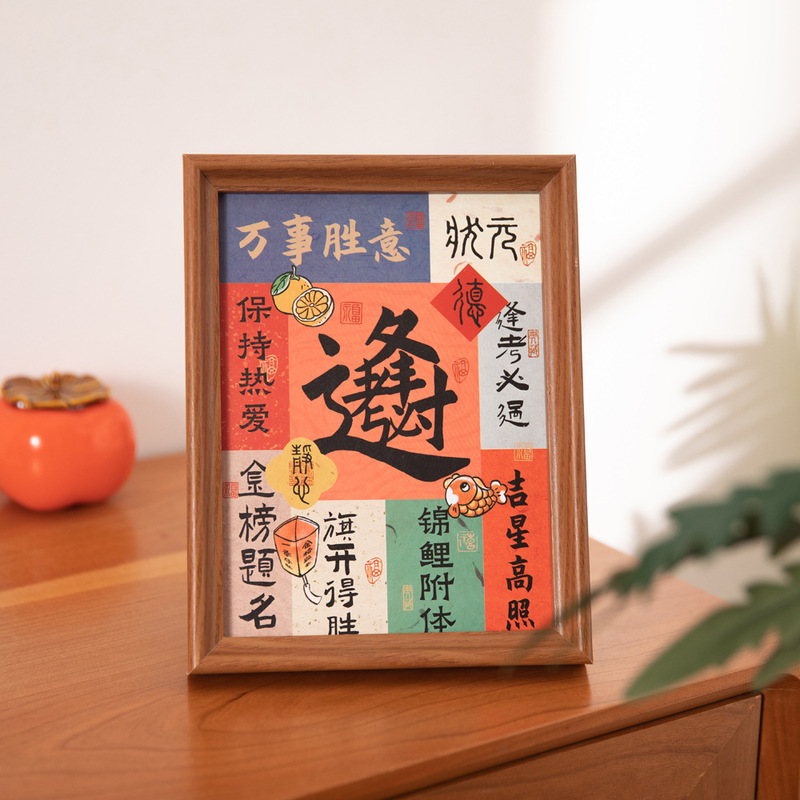 万事胜意
状元
保持热爱
德
逢考必過
靜心
金榜題名
旗开得胜
锦鲤附体
吉星高照